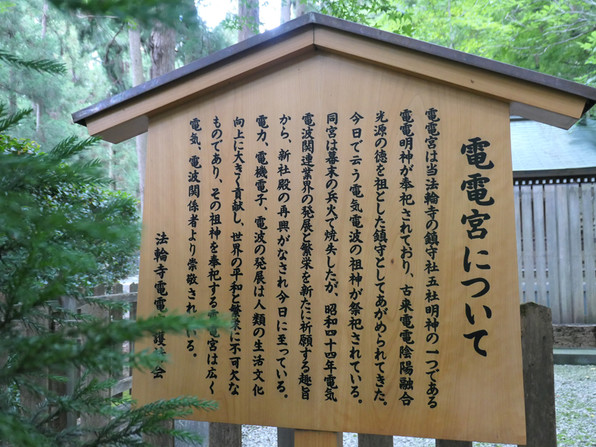 電電宮について
電電宮は当法輪寺の鎮守社五社明神の一つである
電電明神が奉祀されており、古来電電陰陽融合
光源の徳を祖とした鎮守としてあがめられてきた。
今日で云う電気電波の祖神が祭祀されている。
同宮は幕末の兵火で焼失したが、昭和四十四年電気
電波関連業界の発展と繁栄を新たに祈願する趣旨
から、新社殿の再興がなされ今日に至っている。
電力、電機電子、電波の発展は人類の生活文化
向上に大きく貢献し、世界の平和と繁栄に不可欠な
ものであり、その祖神を奉祀する電電宮は広く
電気、電波関係者より崇敬されている。
法輪寺電電 護 会